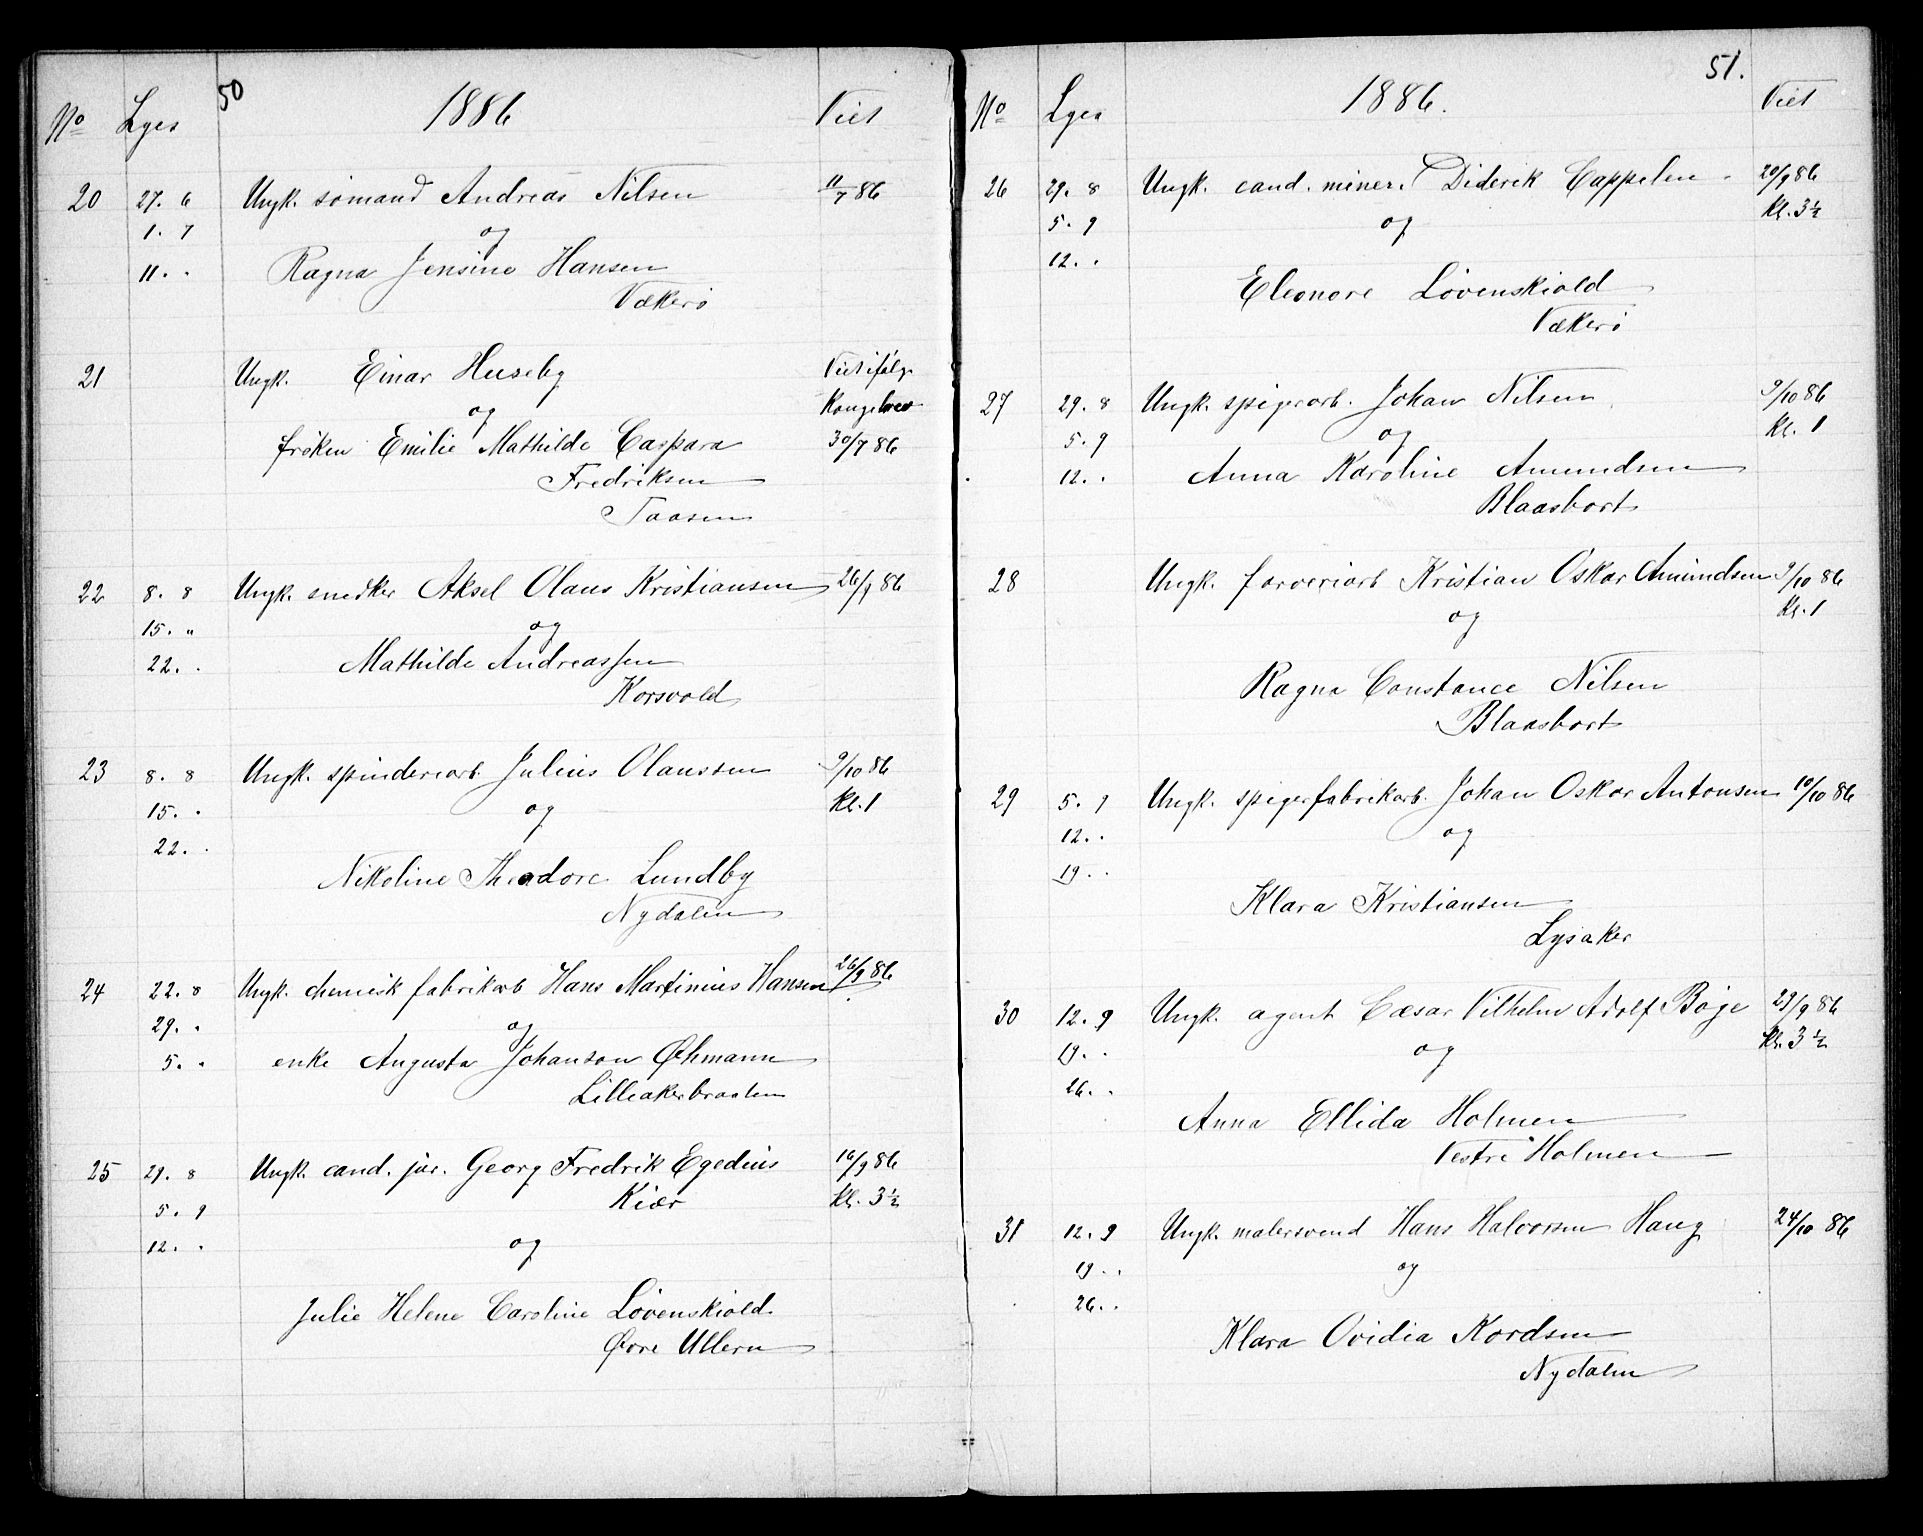 50
1886
No Lyes Viet
20 27. 6 Ungk. sømand Andreas Nilsen 11/7 86
1. 7 og
11. " Ragna Jensine Hansen
Vækerø
21 Ungk. Einar Huseby Viet ifølge
og Kongebrev
frøken Emilie Mathilde Caspara 30/7 86
Fredriksen
Taasen
22 8. 8 Ungk. snedker Aksel Olaus Kristiansen 26/9 86
15. " og
22. " Mathilde Andreassen
Korsvold
23 8. 8 Ungk. spinderiarb. Julius Olaussen 9/10 86
15. " og Kl. 1
22. "
Nikoline Theodore Lundby
Nydalen
24 22. 8 Ungk. chemisk fabrikarb Hans Martinius Hansen 26/9 86
29. " og
5. " enke Augusta Johanson Øhmann
Lilleakerbraaten
25 29. 8 Ungk. cand. jur. Georg Fredrik Egedius 16/9 86
5. 9 Kiær Kl. 3½
12. " og
Julie Helene Caroline Løvenskiold
Øvre Ullern
51.
1886.
No Lyes Viet
26 29. 8 Ungk. cand. miner. Diderik Cappelen 20/9 86
5. 9 og Kl. 3½
12. "
Eleonore Løvenskiold
Vækerø
27 29. 8 Ungk. spigerarb. Johan Nilsen 9/10 86
5. 9 og Kl. 1
12. " Anna Karoline Amundsen
Blaasbort
28 Ungk. farveriarb Kristian Oskar Amundsen 9/10 86
og Kl. 1
Ragna Constance Nilsen
Blaasbort
29 5. 9 Ungk. spigerfabrikarb. Johan Oskar Antonsen 10/10 86
12. " og
19. "
Klara Kristiansen
Lysaker
30 12. 9 Ungk. agent Cæsar Vilhelm Adolf Bøge 29/9 86
19. " og Kl. 3½
26. "
Anna Ellida Holmen
Vestre Holmen
31 12. 9 Ungk. malersvend Hans Halvorsen Haug 24/10 86
19. " og
26. "
Klara Ovidia Kordsen
Nydalen